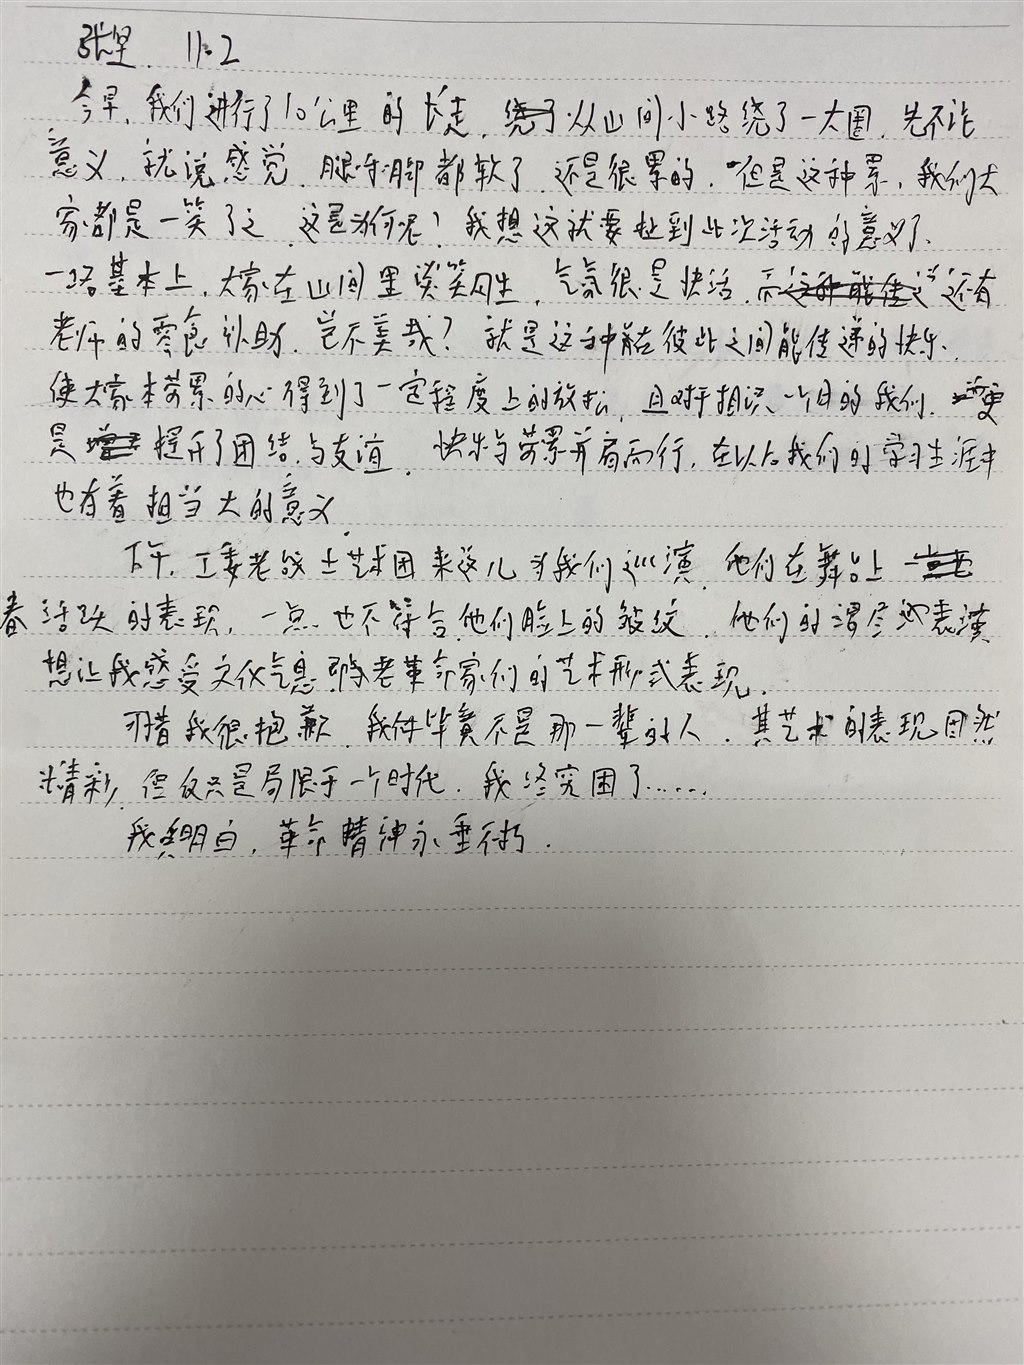 11.2
今早,我们进行了10公里的长走,从山间小路绕了一大圈,先不论
意义,就说感觉,腿和脚都软了,还是很累的,但是这种累,我们大
家都是一笑了之,这是为何呢!我想这就要扯到此次活动的意义了、
一路基本上,大家在山间里谈笑风生,气氛很是快活,还有
老师的零食补助,岂不美哉?就是这种能在彼此之间能传递的快乐、
使大家本劳累的心得到了一定程度上的放松,且对于相识一个月的我们,更
是提升了团结与友谊,快乐与劳累并肩而行,在以后我们的学习生涯中
也有着担当大的意义.
下午,工委老战士艺术团来这儿为我们巡演,他们在舞台上一
春活跃的表现,一点也不符合他们脸上的皱纹,他们的竭尽的表演
想让我感受文化气息,老革命家们的艺术形式表现.
可惜我很抱歉,我们毕竟不是那一辈的人,其艺术的表现固然
精彩,但仅只是局限于一个时代,我终究困了......
我明白,革命精神永垂不朽.